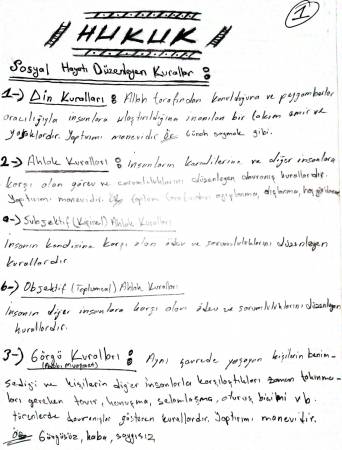 1
HUKUK
Sosyal Hayatı Düzenleyen Kurallar :
1-) Din Kuralları : Allah tarafından konulduğuna ve peygamberler
aracılığıyla insanlara ulaştırıldığına inanılan bir takım emir ve
yasaklardır. Yaptırımı manevidir. Ör Günah saymak gibi.
2-) Ahlak Kuralları : İnsanların kendilerine ve diğer insanlara
karşı olan görev ve sorumluluklarını düzenleyen davranış kurallarıdır.
Yaptırımı manevidir. Ör toplum tarafından ayıplanma, dışlanma, hor görülme
a-) Subjektif (Kişisel) Ahlak Kuralları
İnsanın kendisine karşı olan ödev ve sorumluluklarını düzenleyen
kurallardır.
b-) Objektif (Toplumsal) Ahlak Kuralları
İnsanın diğer insanlara karşı olan ödev ve sorumluluklarını düzenleyen
kurallardır.
3-) Görgü Kuralları : Aynı çevrede yaşayan kişilerin benim-
(Adabı Muaşeret)
sediği ve kişilerin diğer insanlarla karşılaştıkları zaman takınma-
ları gereken tavır, konuşma, selamlaşma, oturuş, biçimi vb.
törenlerde davranışlar gösteren kurallardır. Yaptırımı manevidir.
Ör Görgüsüz, kaba, saygısız